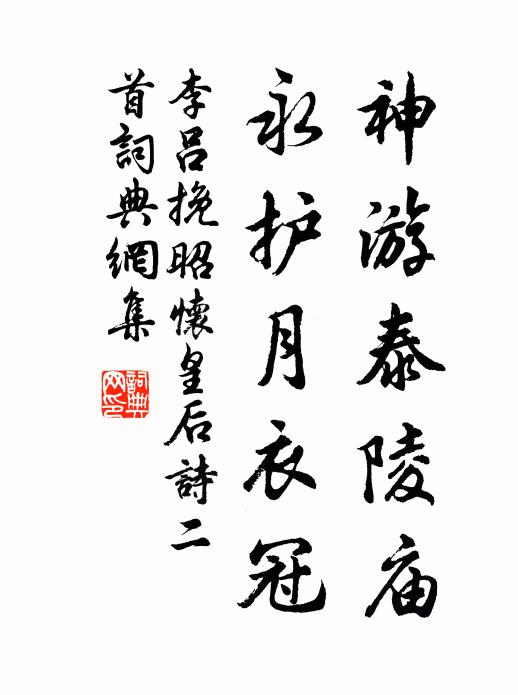 神游泰陵庙
永护月衣冠
李吕挽昭懷皇后詩二
首詞典網集
詞典网印